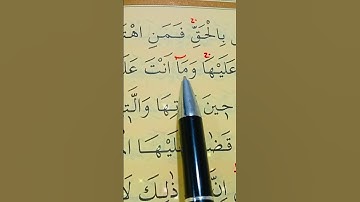 بِالْحَقِّ فَمَنِ اهْتَ
عَلَيْهَا وَمَا اَنْتَ عَلَ
حِينَ تِهَا وَالَّتِ
قَضٰ لَيْهَا ا
اِنَّ ذٰلِكَ لَا